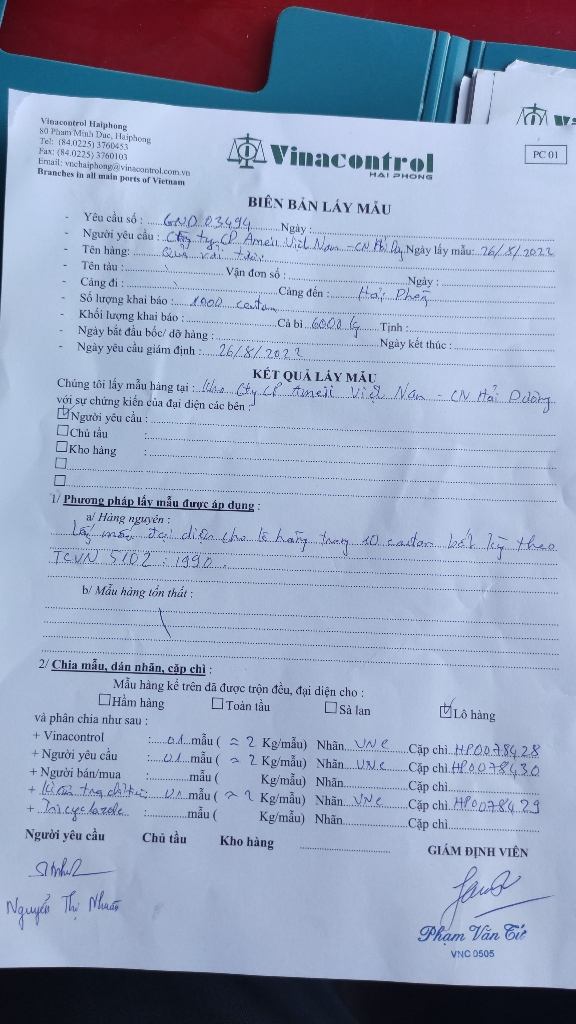 Vinacontrol Haiphong
80 Pham Minh Duc, Haiphong
Tel: (84.0225) 3760453
Fax: (84.0225) 3760103
Email: vnchaiphong@vinacontrol.com.vn
Branches in all main ports of Vietnam
Vinacontrol
HAI PHONG
PC 01
BIÊN BẢN LẤY MẪU
- Yêu cầu số : GND 03494 Ngày :
- Người yêu cầu : Cty CP Ameii Việt Nam - CN Ngày lấy mẫu: 26/8/2022
- Tên hàng: Quả vải tươi
- Tên tàu : Vận đơn số : Ngày :
- Cảng đi : Cảng đến : Hải Phòng
- Số lượng khai báo : 1000 carton
- Khối lượng khai báo : Cả bì 6000 kg Tịnh :
- Ngày bắt đầu bốc/ dỡ hàng : Ngày kết thúc :
- Ngày yêu cầu giám định : 26/8/2022
KẾT QUẢ LẤY MẪU
Chúng tôi lấy mẫu hàng tại : Kho Cty CP Ameii Việt Nam - CN Hải Dương
với sự chứng kiến của đại diện các bên :
Người yêu cầu :
Chủ tầu :
Kho hàng :
1/ Phương pháp lấy mẫu được áp dụng :
a/ Hàng nguyên :
Lấy mẫu đại diện cho lô hàng trong 10 carton bất kỳ theo
TCVN 5102 : 1990.
b/ Mẫu hàng tổn thất :
2/ Chia mẫu, dán nhãn, cặp chì :
Mẫu hàng kể trên đã được trộn đều, đại diện cho :
Hầm hàng Toàn tầu Sà lan Lô hàng
và phân chia như sau :
+ Vinacontrol : 01 mẫu ( ≈ 2 Kg/mẫu) Nhãn VNC Cặp chì HP0078428
+ Người yêu cầu : 01 mẫu ( ≈ 2 Kg/mẫu) Nhãn VNC Cặp chì HP0078430
+ Người bán/mua : mẫu ( Kg/mẫu) Nhãn Cặp chì
+ Kiểm tra chỉ tiêu : 01 mẫu ( ≈ 2 Kg/mẫu) Nhãn VNC Cặp chì HP0078429
+ Tricyclazole : mẫu ( Kg/mẫu) Nhãn Cặp chì
Người yêu cầu Chủ tầu Kho hàng GIÁM ĐỊNH VIÊN
Nguyễn Thị Nhuần
Phạm Văn Tứ
VNC 0505